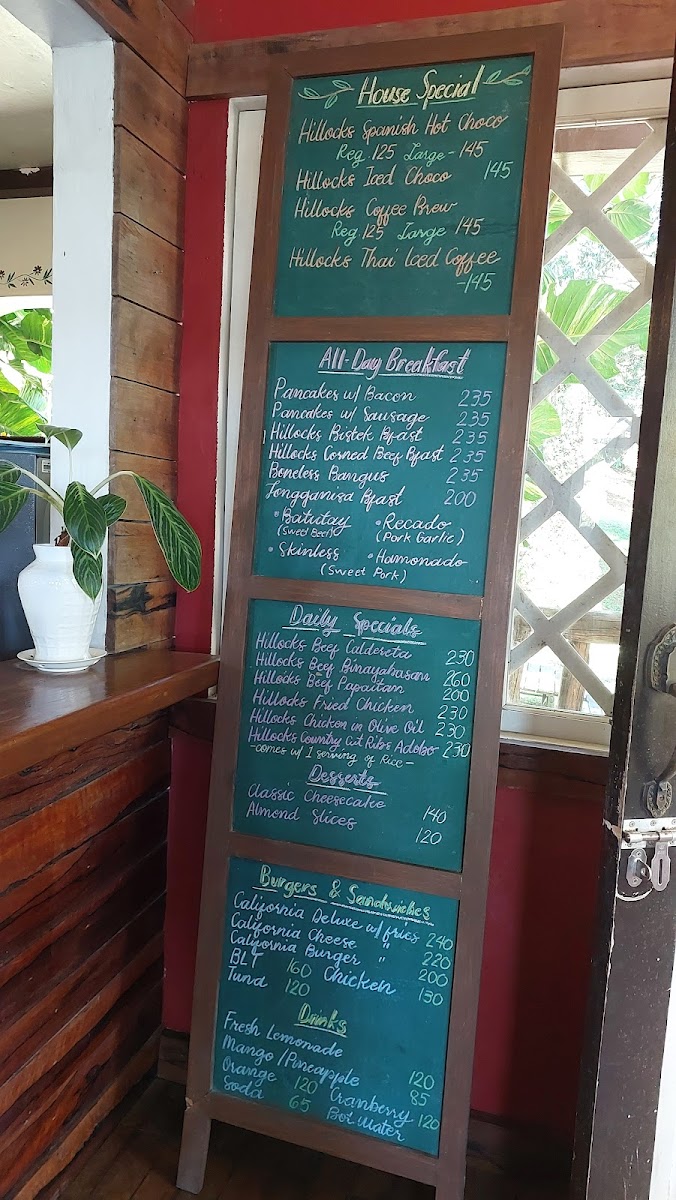 House Special
Hillocks Spanish Hot Choco
Reg 125 Large - 145
Hillocks Iced Choco 145
Hillocks Coffee Brew
Reg 125 Large 145
Hillocks Thai Iced Coffee
-145
All-Day Breakfast
Pancakes w/ Bacon 235
Pancakes w/ Sausage 235
Hillocks Bistek Bfast 235
Hillocks Corned Beef Bfast 235
Boneless Bangus 235
Longganisa Bfast 200
• Batutay • Recado
(Sweet Beef) (Pork Garlic)
• Skinless • Hamonado
(Sweet Pork)
Daily Specials
Hillocks Beef Caldereta 230
Hillocks Beef Binayabasan 260
Hillocks Beef Papaitan 200
Hillocks Fried Chicken 230
Hillocks Chicken in Olive Oil 230
Hillocks Country Cut Ribs Adobo - 230
- comes w/ 1 serving of Rice -
Desserts
Classic Cheesecake 140
Almond Slices 120
Burgers & Sandwiches
California Deluxe w/ fries 240
California Cheese " 220
California Burger " 200
BLT 160 Chicken 130
Tuna 120
Drinks
Fresh Lemonade 120
Mango/Pineapple 85
Orange 120 Cranberry 120
Soda 65 Bot Water